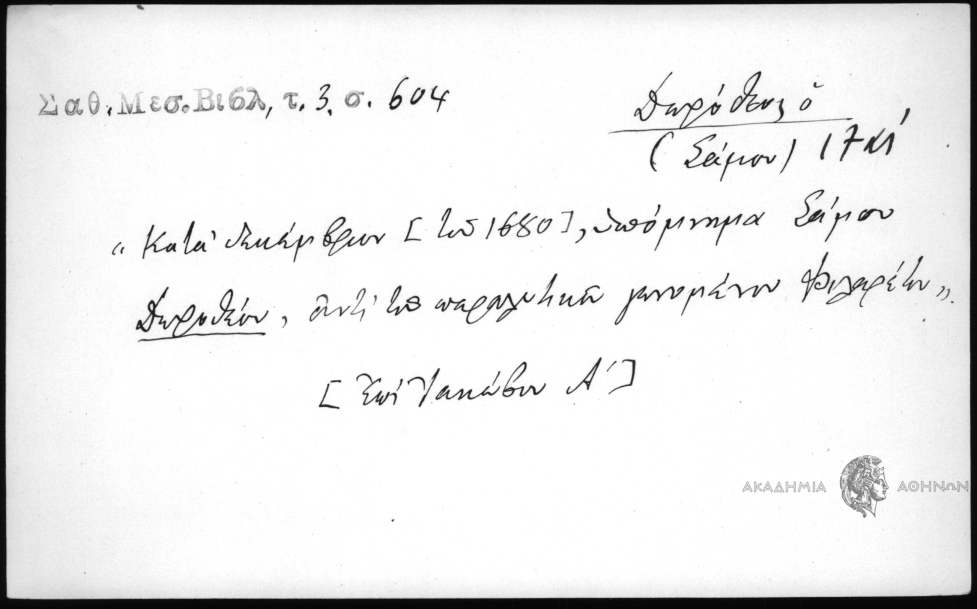 Σαθ. Μεσ. Βιβλ, τ. 3. σ. 604
Δωρόθεος ὁ
(Σάμου) 17
"Κατὰ Δεκέμβριον [τοῦ 1680], ὑπόμνημα Σάμου
Δωροθέου, ἀντὶ τοῦ παραλυτικοῦ γενομένου Φιλαρέτου".
[Ἐπὶ Ἰακώβου Α΄]
ΑΚΑΔΗΜΙΑ ΑΘΗΝΩΝ